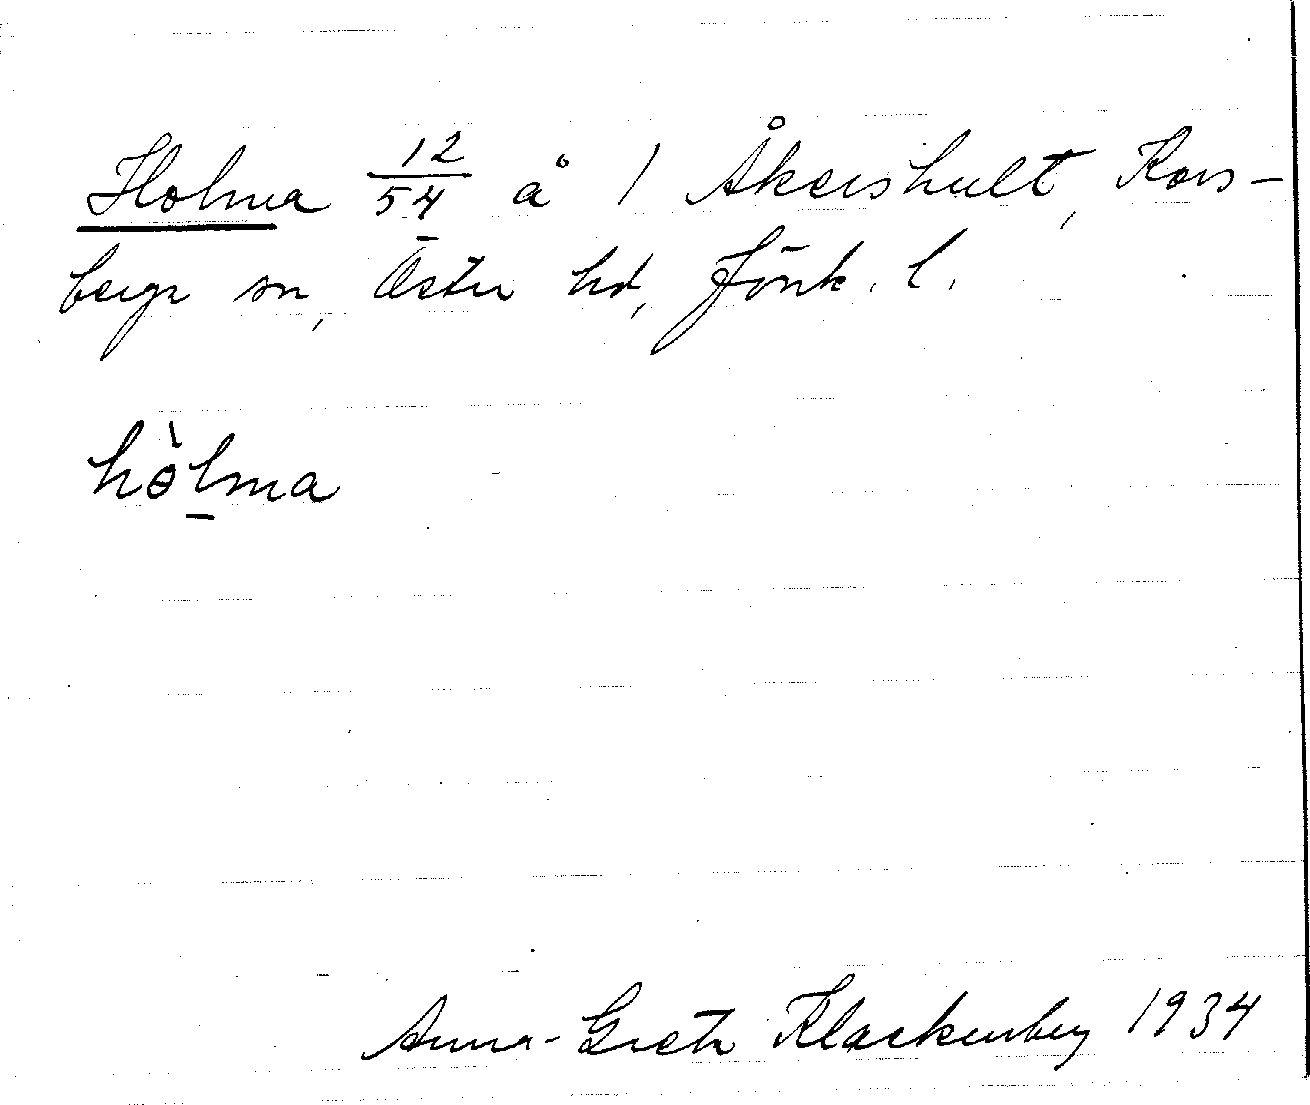 Holma 12/54 å 1 Åkershult, Kors-
berga sn, Östra hd, Jönk. l.
hòlma
Anna-Greta Klackenberg 1934